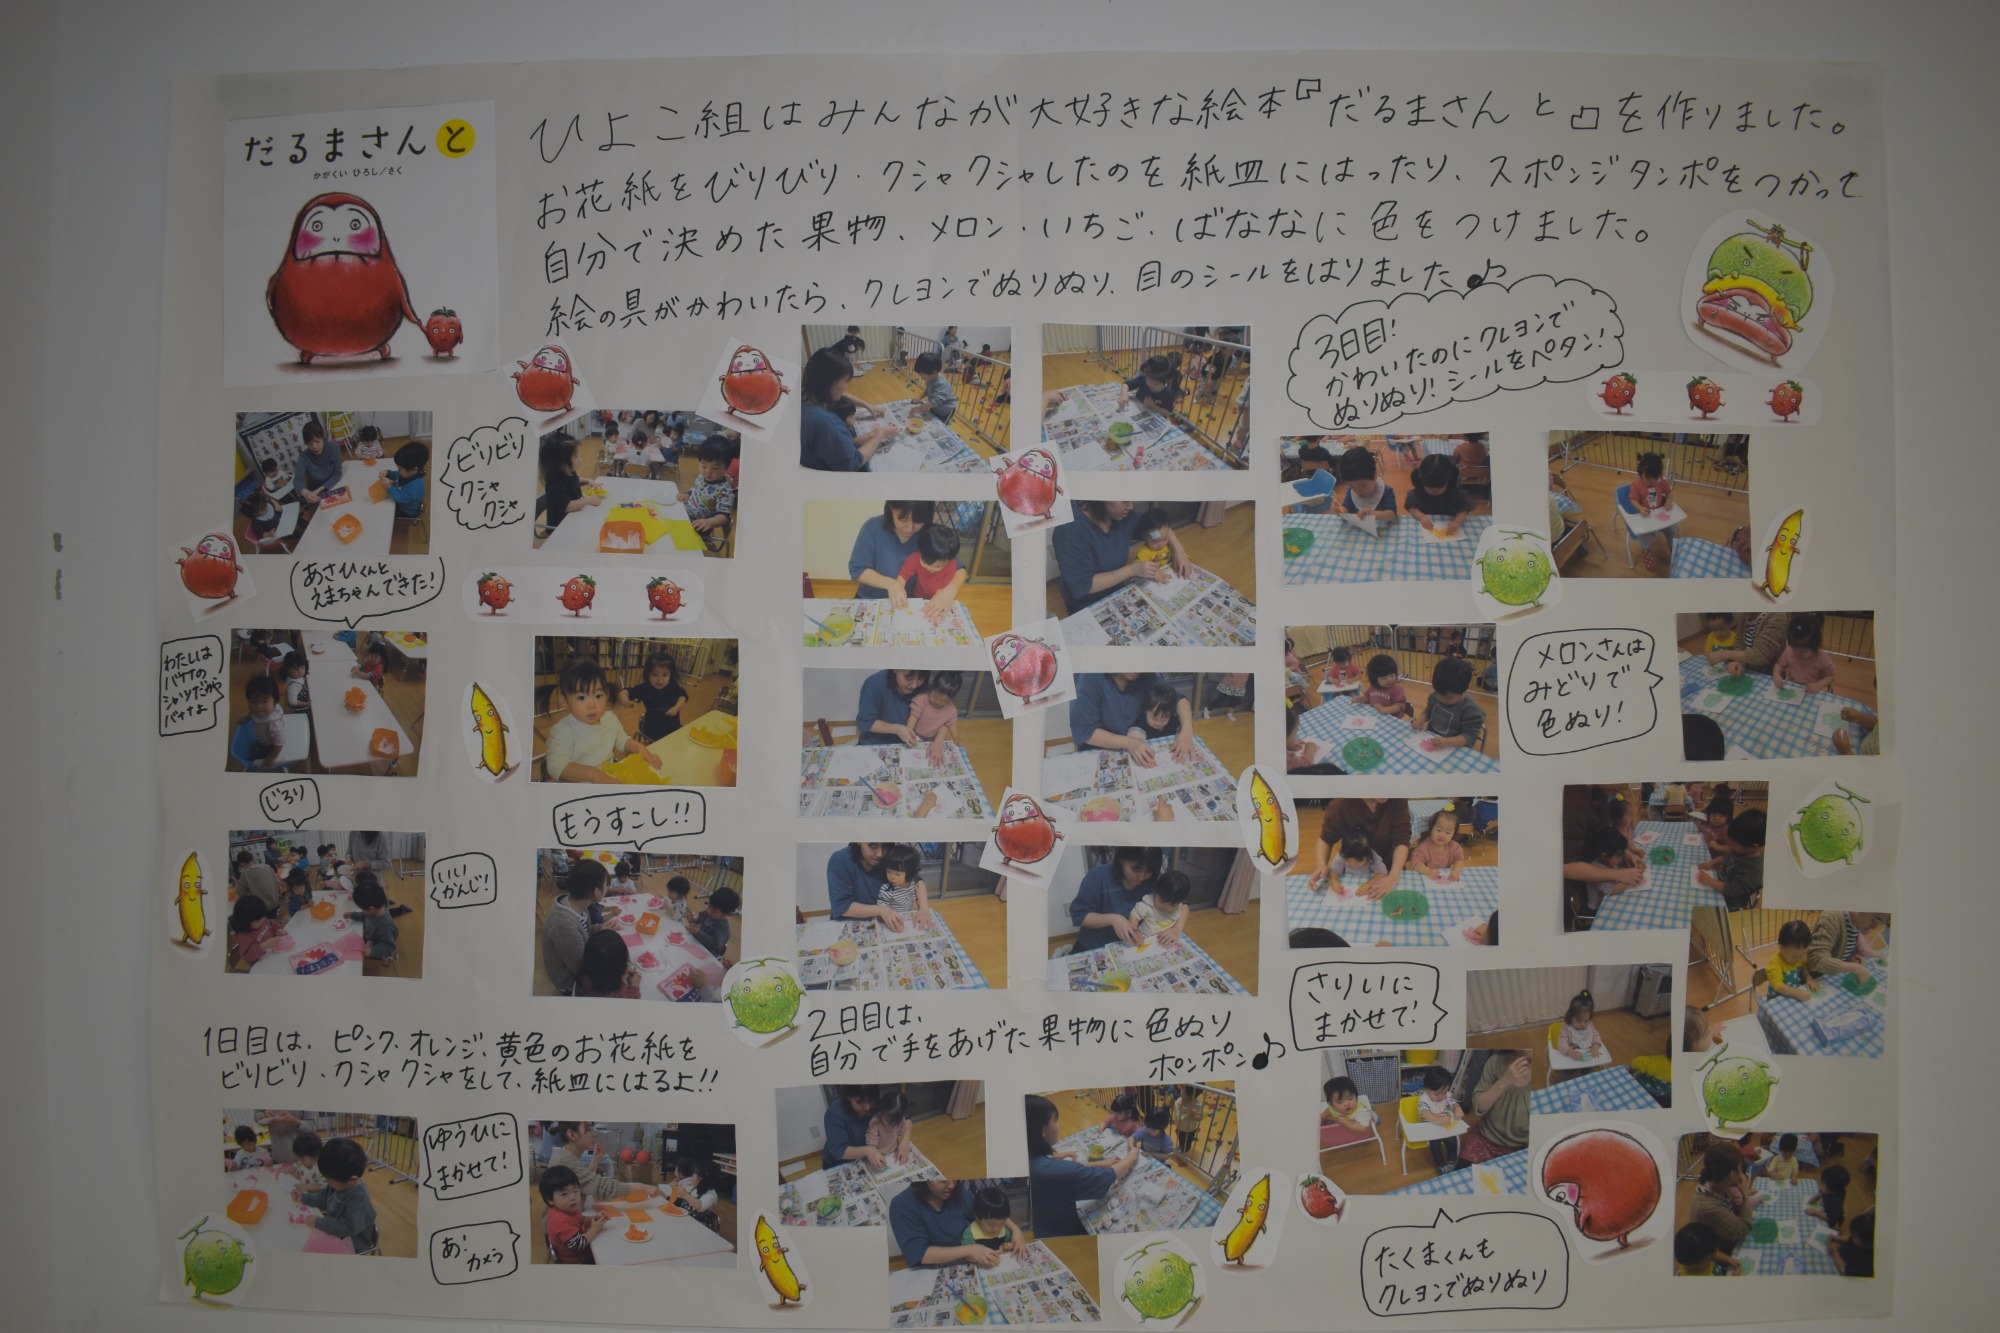 だるまさんと
かがくい ひろし／さく
ひよこ組はみんなが大好きな絵本『だるまさんと』を作りました。
お花紙をびりびり・クシャクシャしたのを紙皿にはったり、スポンジタンポをつかって
自分で決めた果物、メロン・いちご・ばななに色をつけました。
絵の具がかわいたら、クレヨンでぬりぬり、目のシールをはりました♪
ビリビリ
クシャ
クシャ
あさひくんと
えまちゃんできた!
わたしは
バナナの
シャツだから
バナナよ
じろり
いい
かんじ!
もうすこし!!
1日目は、ピンク、オレンジ、黄色のお花紙を
ビリビリ・クシャクシャをして、紙皿にはるよ!!
ゆうひに
まかせて!
あ!
カメラ
2日目は、
自分で手をあげた果物に色ぬり
ポンポン♪
3日目!
かわいたのにクレヨンで
ぬりぬり!シールをペタン!
メロンさんは
みどりで
色ぬり!
さりいに
まかせて!
たくまくんも
クレヨンでぬりぬり